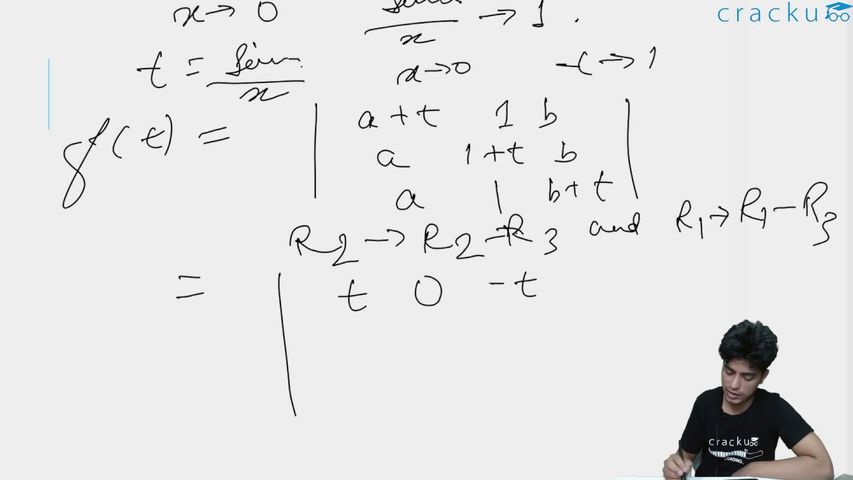 cracku
x → 0 sinx/x → 1.
t = sinx/x x→0 t → 1
f(t) = | a+t 1 b |
| a 1+t b |
| a 1 b+t |
R2 → R2-R3 and R1→R1-R3
= | t 0 -t
cracku